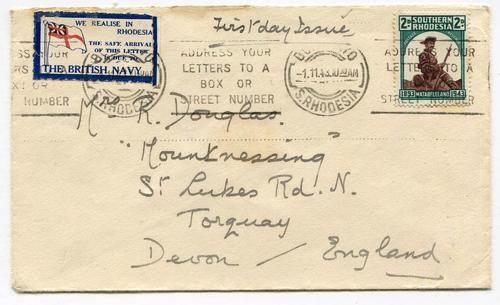 First day Issue
WE REALISE IN
RHODESIA
THE SAFE ARRIVAL
OF THIS LETTER
IS DUE TO
THE BRITISH NAVY
ADDRESS YOUR
LETTERS TO A
BOX OR
STREET NUMBER
-1.11.43.10
S. RHODESIA
ADDRESS YOUR
LETTERS TO A
STREET NUMBER
2D SOUTHERN 2D
RHODESIA
1893 MATABELELAND 1943
NUMBER
RHODESIA
Mr R. Douglas.
"Mountnessing"
St Lukes Rd. N.
Torquay
Devon / England